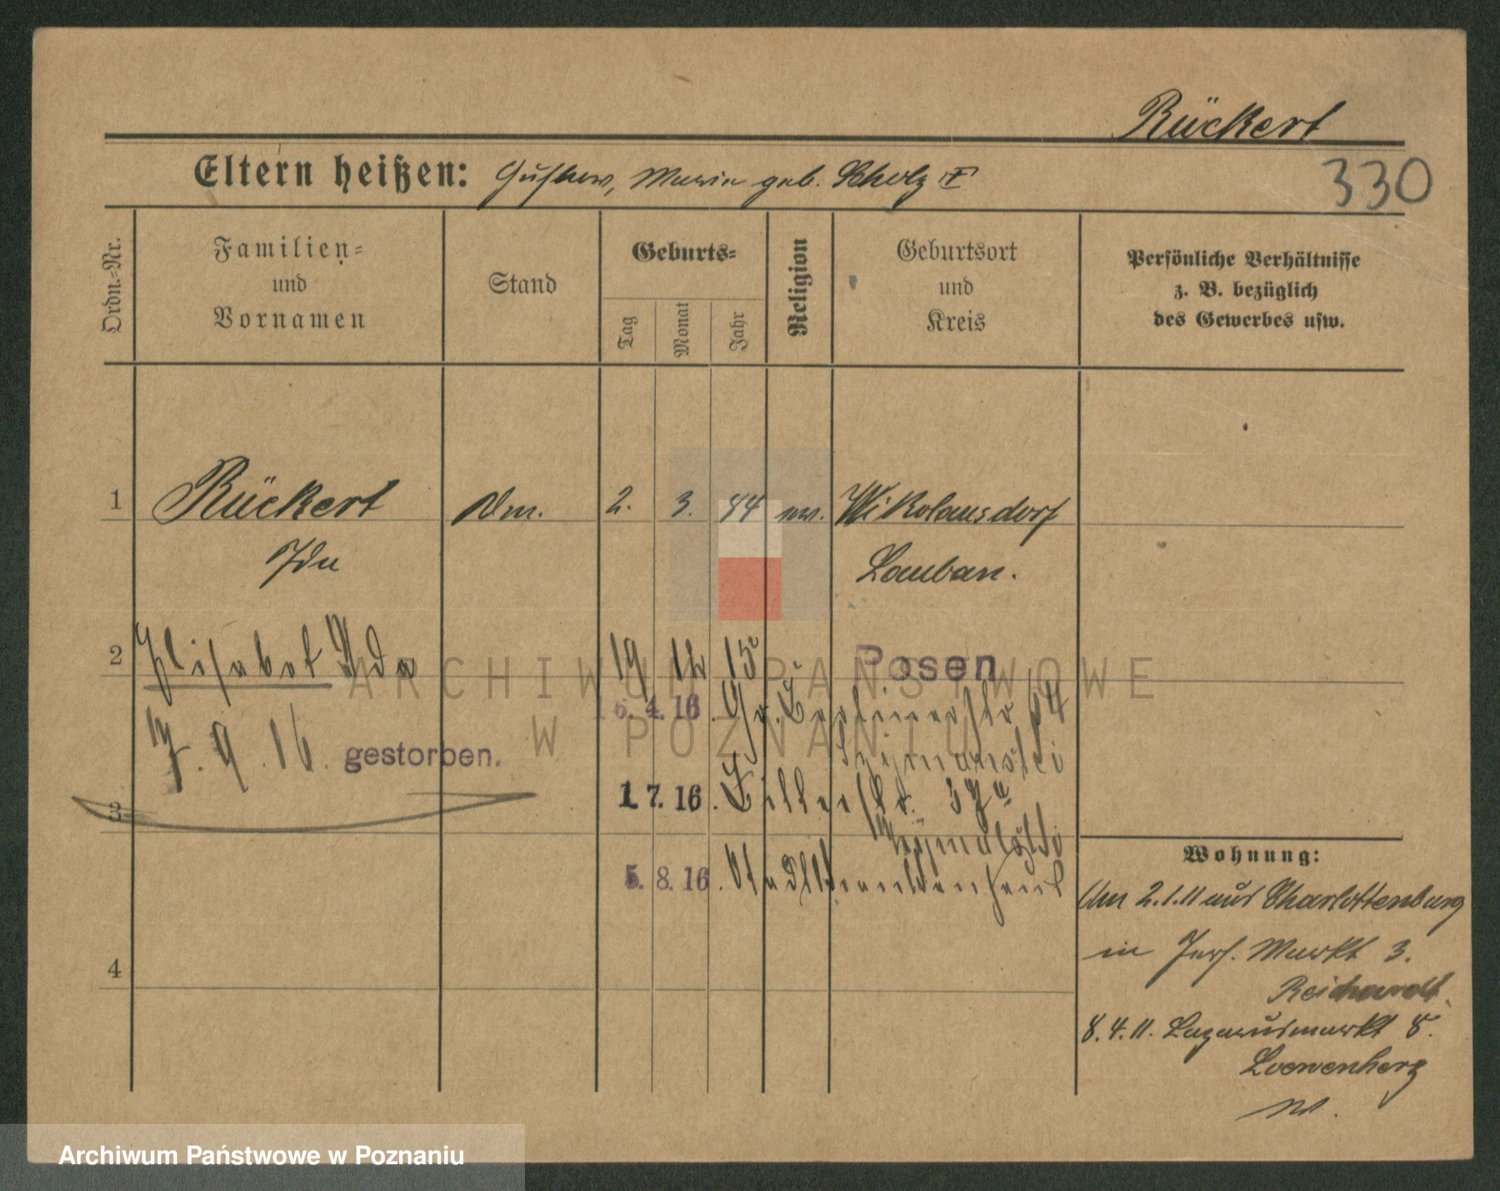 Rückert
330
Eltern heißen: Gustav, Maria geb. Scholz
Ordn.-Nr.
Familien-
und
Vornamen
Stand
Geburts-
Tag
Monat
Jahr
Religion
Geburtsort
und
Kreis
Persönliche Verhältnisse
z. B. bezüglich
des Gewerbes usw.
1 Rückert 2. 3. 84 Nikolausdorf
Ida Lauban.
2 Elisabet Ida 19 12 15 Posen
6. 4. 16. Gr. Berlinerstr 64
7. 9. 16. gestorben.
1. 7. 16.
3
5. 8. 16. Stadtkrankenhaus
4
Wohnung:
Am 2.1.11 aus Charlottenburg
in Jers. Markt 3.
Reichardt.
8.4.11. Lazarusmarkt 8.
Loewenherz
ARCHIWUM PAŃSTWOWE
W POZNANIU
Archiwum Państwowe w Poznaniu